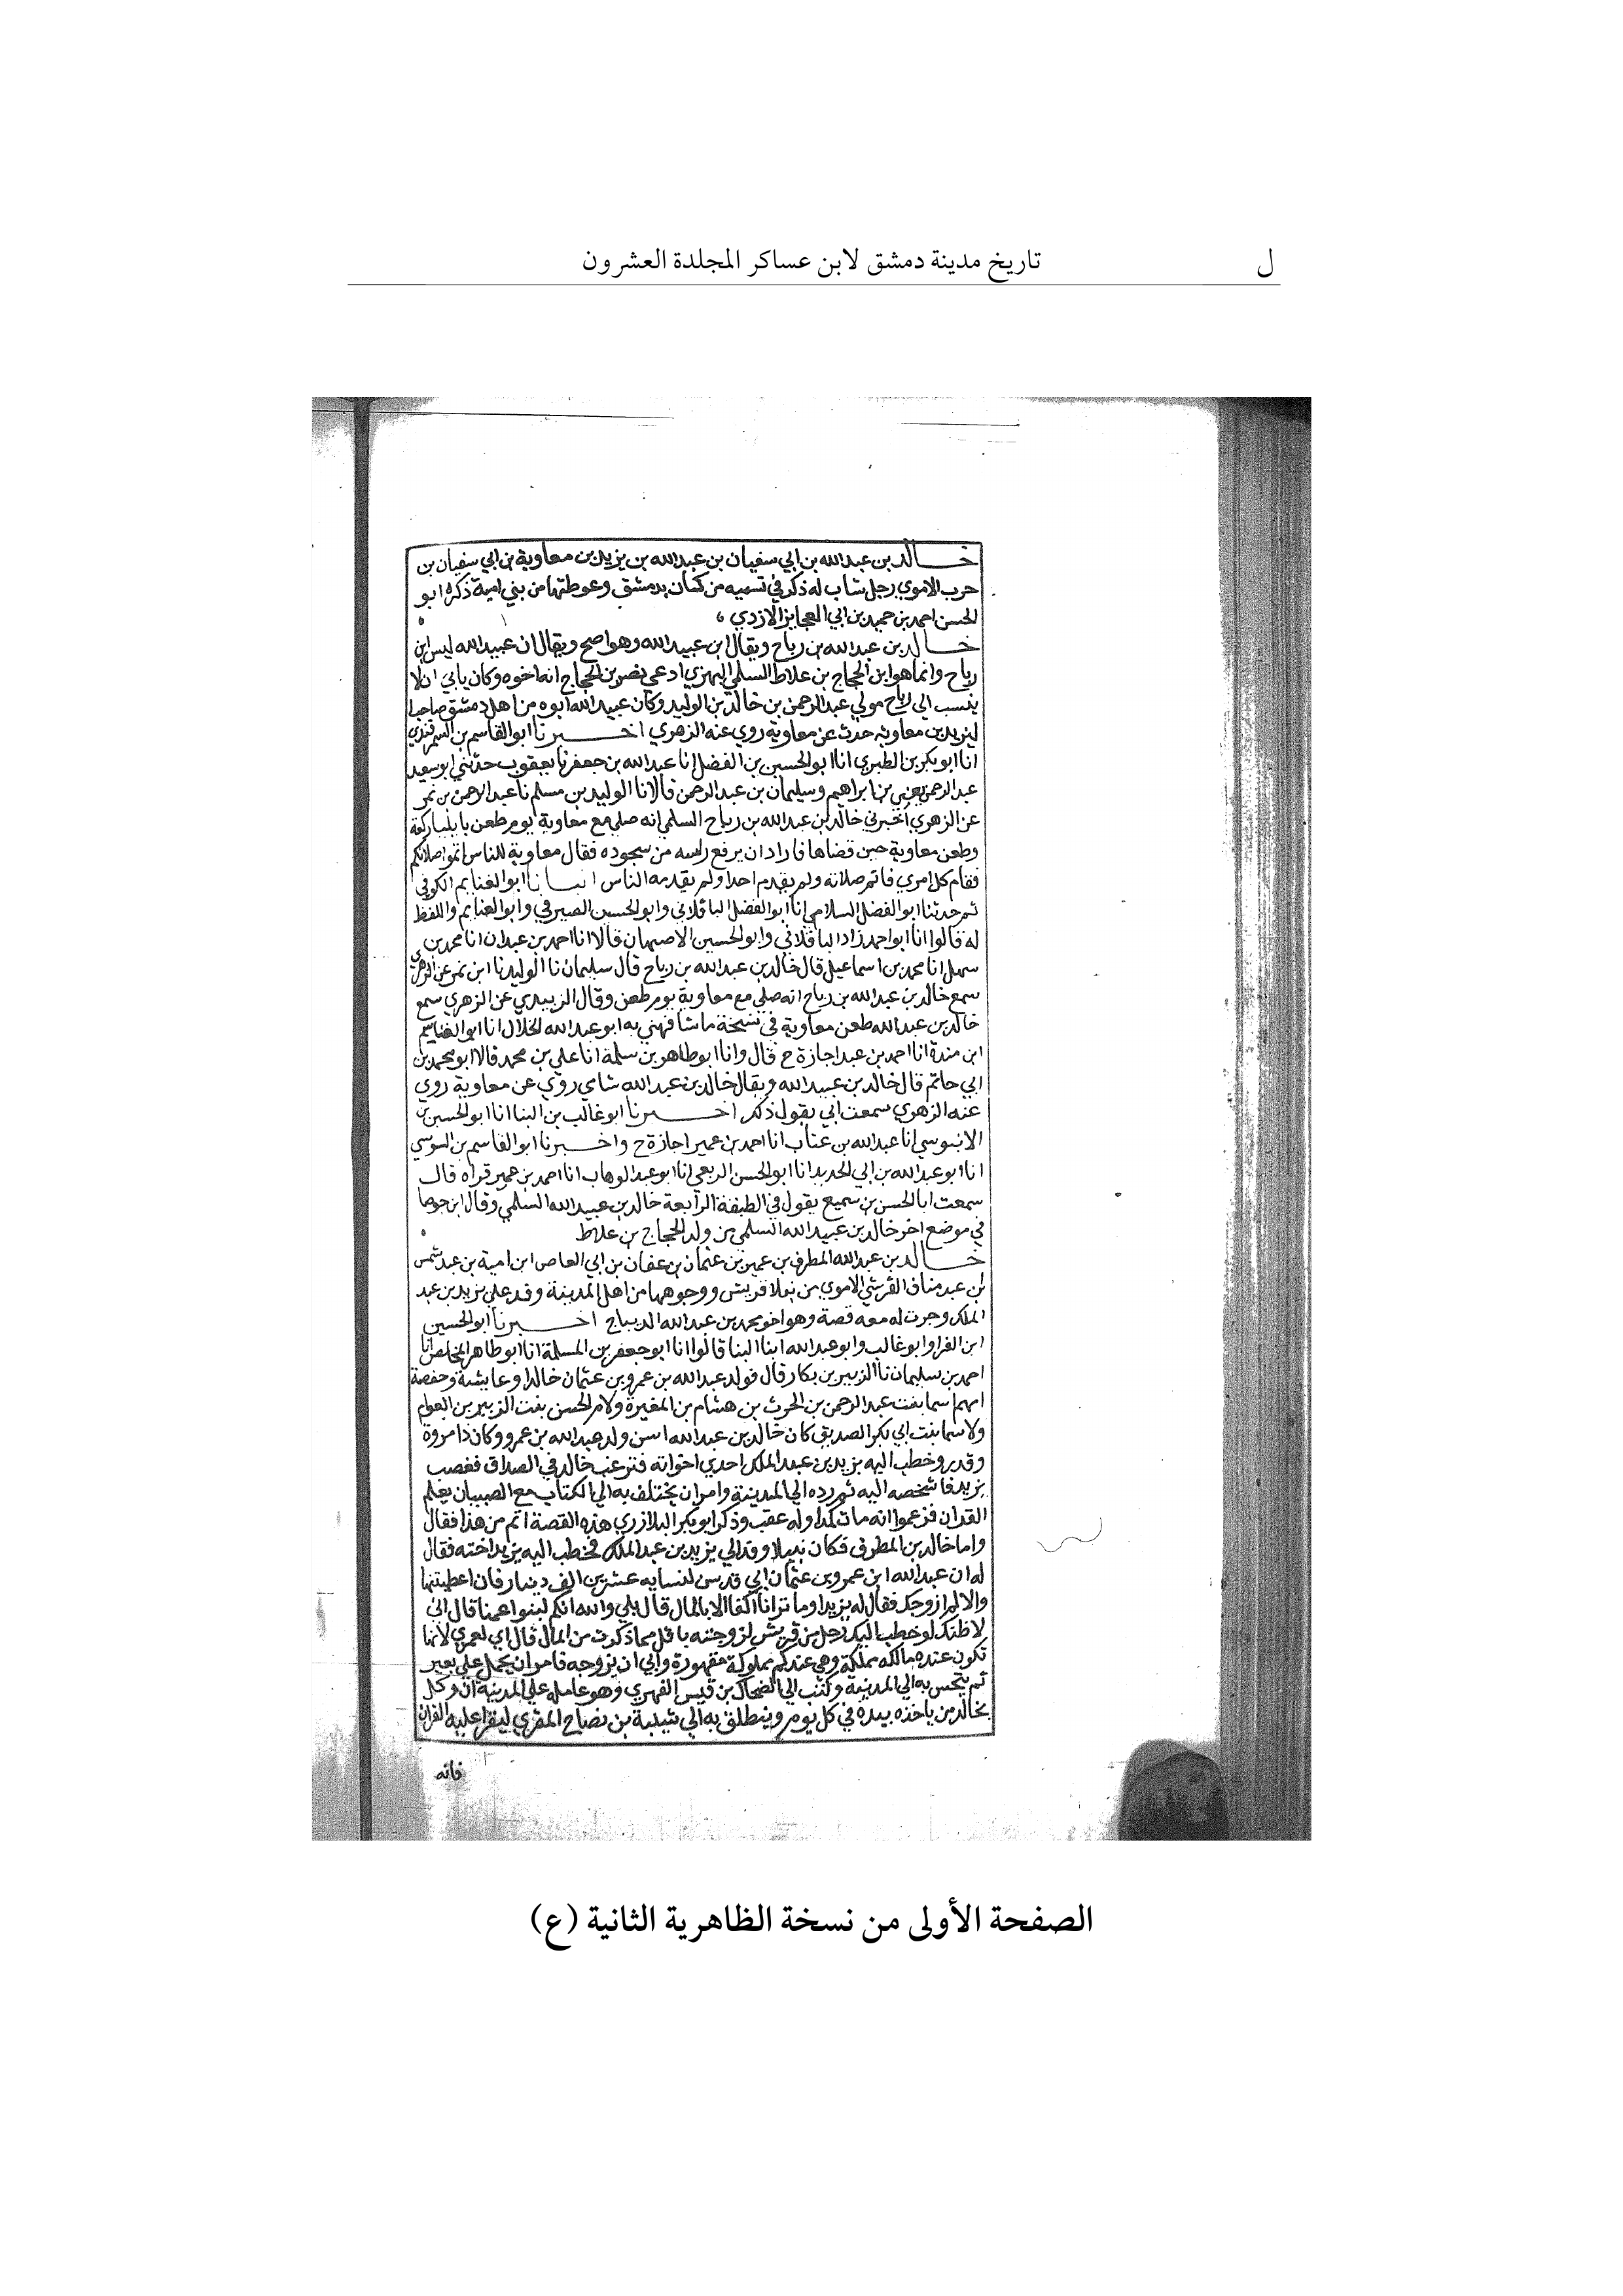 ل
تاريخ مدينة دمشق لابن عساكر المجلدة العشرون
خالد بن عبد الله بن ابي سفيان بن عبد الله بن يزيد بن معاوية بن ابي سفيان بن
حرب الاموي رجل شاب له ذكر في تسميه من كان بدمشق وغوطتها من بني امية ذكره ابو
الحسن احمد بن حميد بن ابي العجايز الازدي
خالد بن عبد الله بن رباح ويقال ابن عبيد الله وهو اصح ويقال ان عبيد الله ليس ابن
رباح وانما هو ابن الحجاج بن علاط السلمي البهزي ادعي نصر بن الحجاج انه اخوه وكان يابي ان لا
ينسب الي رباح مولي عبد الرحمن بن خالد بن الوليد وكان عبيد الله ابوه من اهل دمشق صاحبا
ليزيد بن معاوية حدث عن معاوية روي عنه الزهري اخبرنا ابو القاسم بن السمرقندي
انا ابو بكر بن الطبري انا ابو الحسين بن الفضل انا عبد الله بن جعفر نا يعقوب حدثني ابو سعيد
عبد الرحمن بن ابراهيم وسليمان بن عبد الرحمن قالا نا الوليد بن مسلم نا عبد الرحمن بن نمر
عن الزهري اخبرني خالد بن عبد الله بن رباح السلمي انه صلي مع معاوية يوم طعن بايليا ركعة
وطعن معاوية حين قضاها فاراد ان يرفع راسه من سجوده فقال معاوية للناس اتموا صلاتكم
فقام كل امري فاتم صلاته ولم يقدم احدا ولم يقدمه الناس انبانا ابو الغنايم الكوفي
ثم حدثنا ابو الفضل السلامي انا ابو الفضل الباقلاني وابو الحسين الصيرفي وابو الغنايم واللفظ
له قالوا انا ابو احمد زاد الباقلاني وابو الحسين الاصبهان قالا انا احمد بن عبدان انا محمد بن
سهل انا محمد بن اسماعيل قال خالد بن عبد الله بن رباح قال سليمان نا الوليد نا ابن نمر عن الزهري
سمع خالد بن عبد الله بن رباح انه صلي مع معاوية يوم طعن وقال الزبيدي عن الزهري سمع
خالد بن عبد الله طعن معاوية في نسخة ما شافهني به ابو عبد الله الخلال انا ابو القاسم
ابن مندة انا احمد بن عبد اجازة ح قال وانا ابو طاهر بن سلمة انا علي بن محمد قالا ابو محمد بن
ابي حاتم قال خالد بن عبيد الله ويقال خالد بن عبد الله شامي روي عن معاوية روي
عنه الزهري سمعت ابي يقول ذلك اخبرنا ابو غالب بن البنا انا ابو الحسين بن
الابنوسي انا عبد الله بن عتاب انا احمد بن عمير اجازة ح واخبرنا ابو القاسم بن السوسي
انا ابو عبد الله بن ابي الحديد انا ابو الحسن الربعي انا ابو عبد الوهاب انا احمد بن عمير قراه قال
سمعت ابا الحسن بن سميع يقول في الطبقة الرابعة خالد بن عبيد الله السلمي وقال ابن جوصا
في موضع اخر خالد بن عبيد الله السلمي من ولد الحجاج بن علاط
خالد بن عبد الله المطرف بن عمرو بن عثمان بن عفان بن ابي العاص ابن امية بن عبد شمس
ابن عبد مناف القرشي الاموي من نبلا قريش ووجوهها من اهل المدينة وفد علي يزيد بن عبد
الملك وجرت له معه قصة وهو اخو محمد بن عبد الله الديباج اخبرنا ابو الحسين
ابن الفرا وابو غالب وابو عبد الله ابنا البنا قالوا انا ابو جعفر بن المسلمة انا ابو طاهر المخلص انا
احمد بن سليمان نا الزبير بن بكار قال فولد عبد الله بن عمرو بن عثمان خالدا وعايشة وحفصة
امهم اسما بنت عبد الرحمن بن الحرث بن هشام بن المغيرة ولام الحسن بنت الزبير بن العوام
ولاسما بنت ابي بكر الصديق كان خالد بن عبد الله اسن ولد عبد الله بن عمرو وكان ذا مروة
وقدر وخطب اليه يزيد بن عبد الملك احدي اخواته فترغب خالد في الصداق فغضب
يزيد فاشخصه اليه ثم رده الي المدينة وامر ان يختلف به الي الكتاب مع الصبيان يعلم
القران فزعموا انه مات كمدا وله عقب وذكر ابو بكر البلاذري هذه القصة اتم من هذا فقال
واما خالد بن المطرف فكان نبيلا وفد الي يزيد بن عبد الملك فخطب اليه يزيد اخته فقال
له ان عبد الله ابن عمرو بن عثمان ابي قد سن لنسايه عشرين الف دينار فان اعطيتنها
والا لم ازوجك فقال له يزيد اوما ترانا اكفا الا بالمال قال بلي والله انكم لبنو عمنا قال اني
لاظنك لو خطب اليك رجل من قريش لزوجته باقل مما ذكرت من المال قال اي لعمري لانها
تكون عنده مالكة مملكة وهي عندكم مملوكة مقهورة وابي ان يزوجه فامر ان يحمل علي بعير
ثم ينخس به الي المدينة وكتب الي الضحاك بن قيس الفهري وهو عامله علي المدينة ان وكل
بخالد من ياخذه بيده في كل يوم وينطلق به الي شيبة بن نصاح المقري ليقرا عليه القران
فانه
الصفحة الأولى من نسخة الظاهرية الثانية (ع)